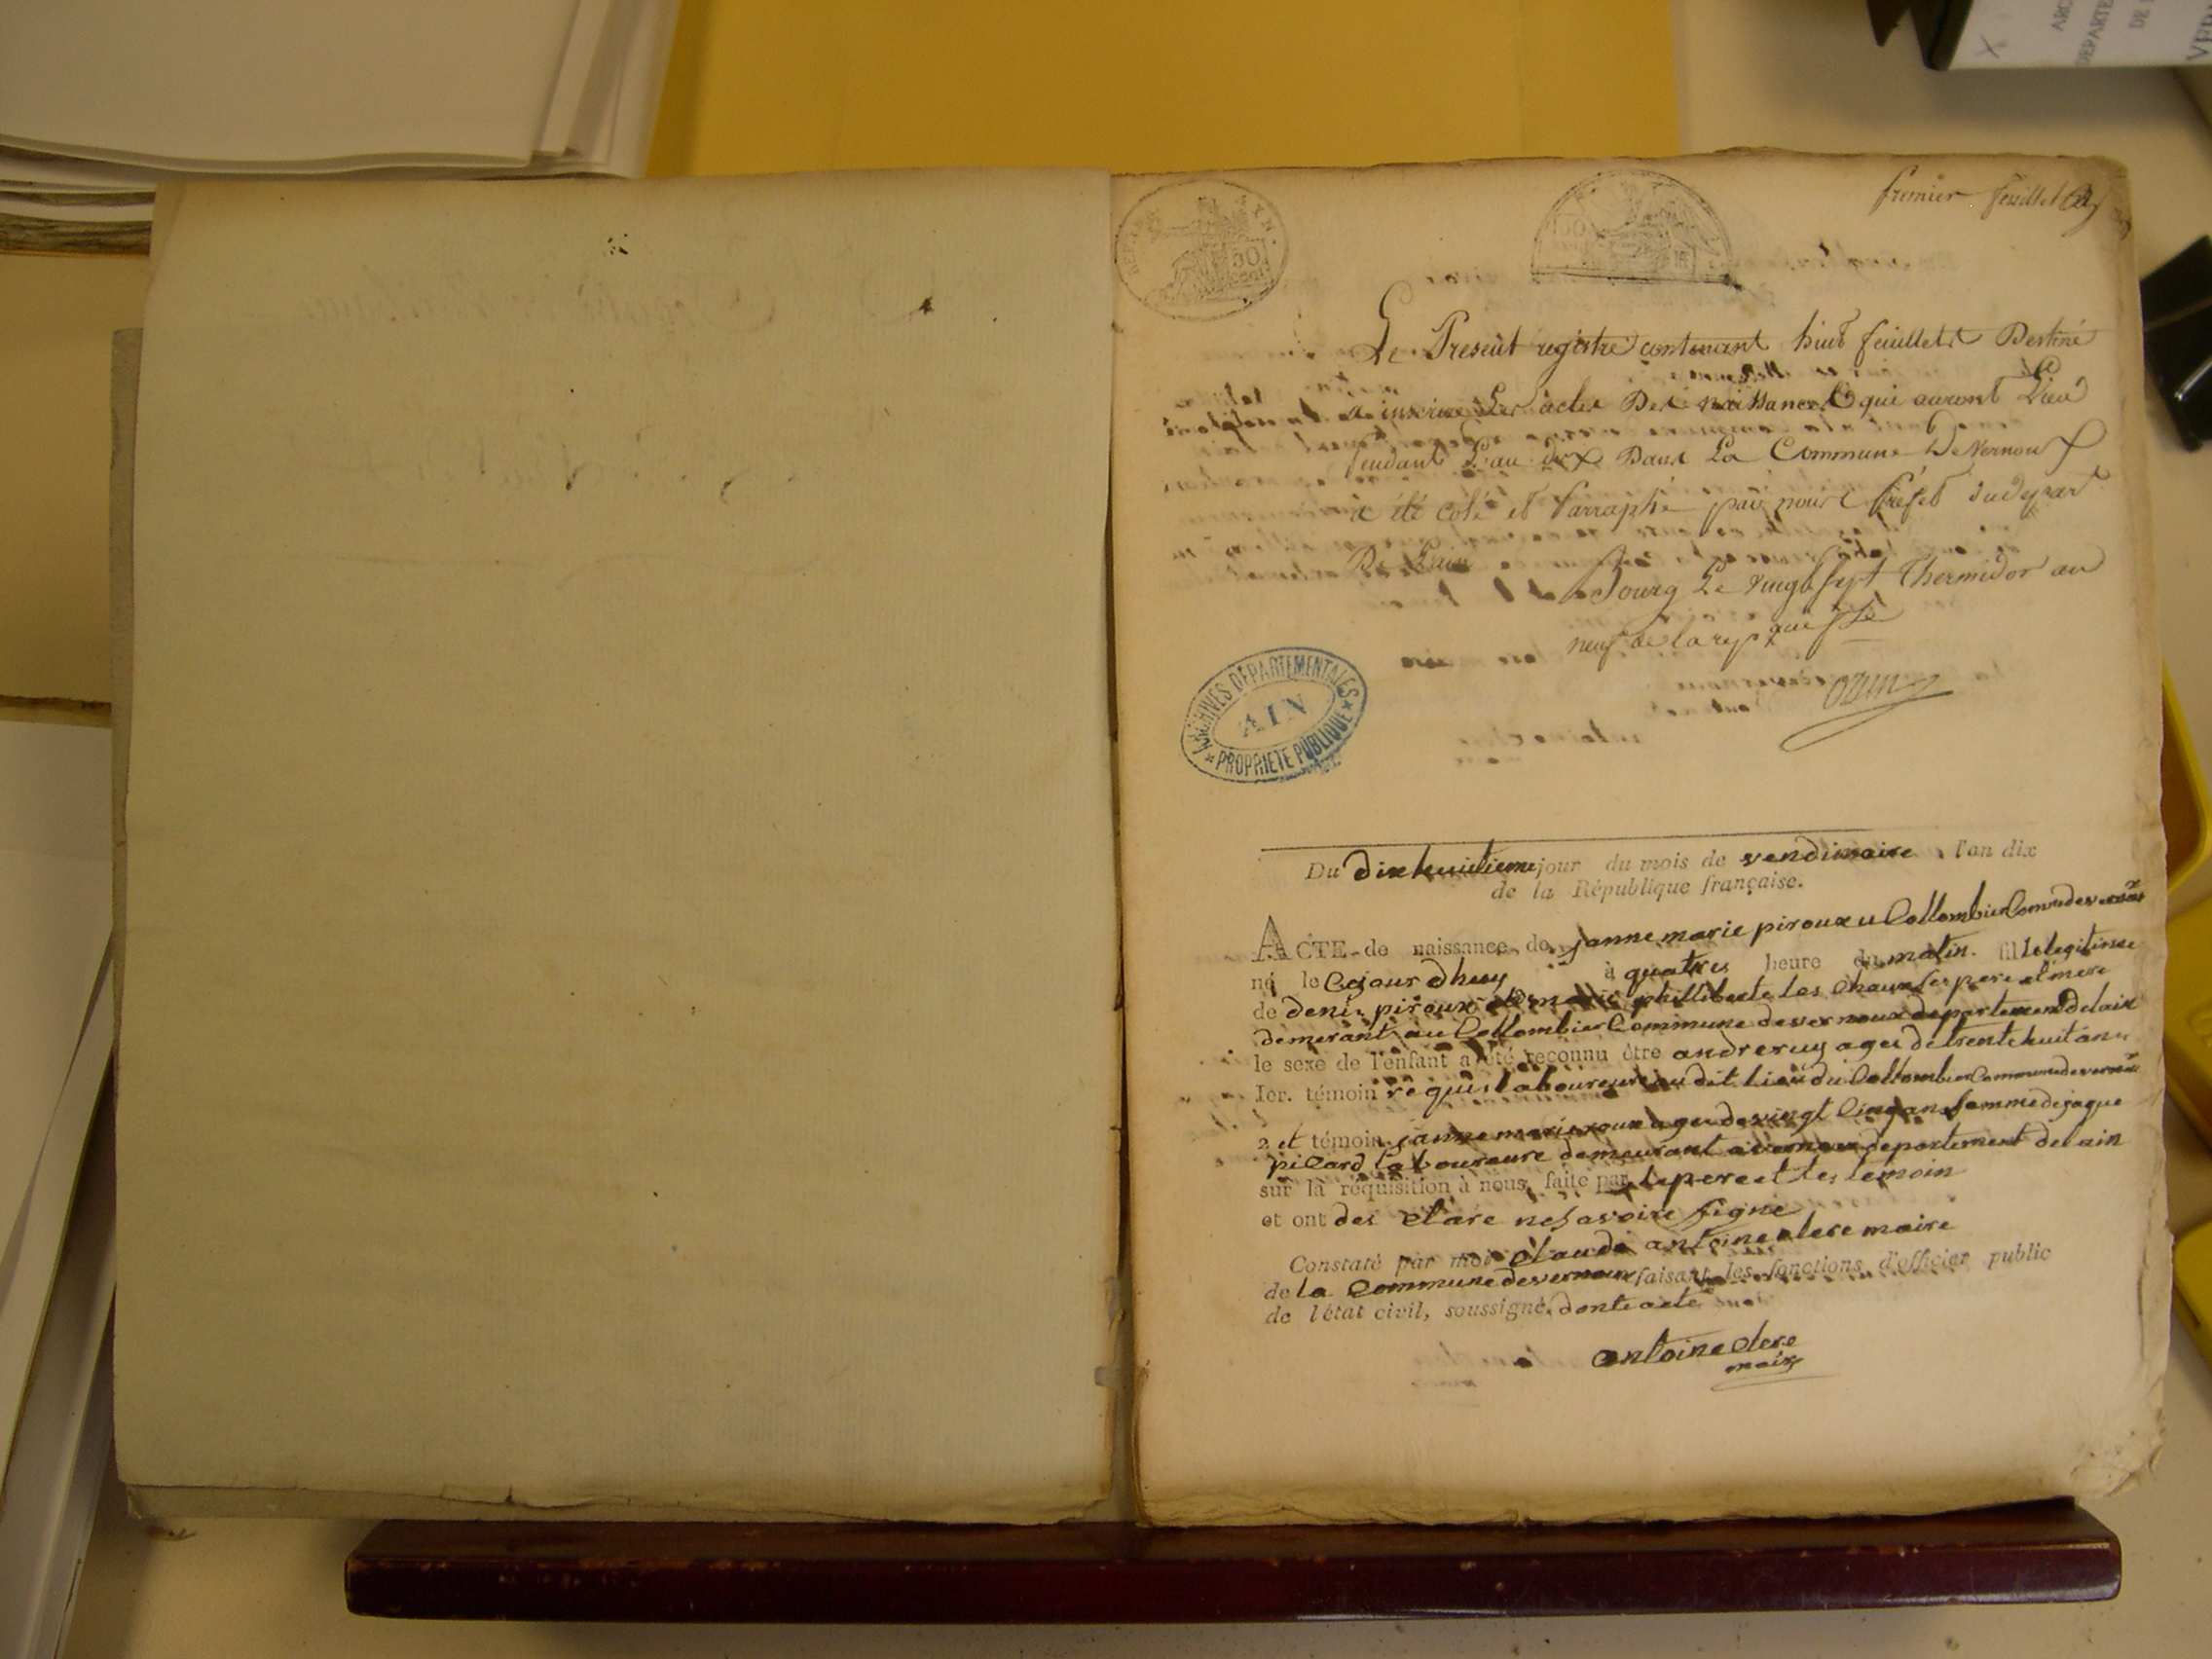 premier feuillet
Le Present registre contenant huit feuillets Destiné
a inscrire Les actes Des naissances qui auront Lieu
pendant L'an dix Dans La Commune De Vernoux
a été coté et Parraphé par nous Préfet du depart
De L'ain
Bourg Le vingt sept Thermidor an
neuf de la rep que fse
OZUN
ARCHIVES DÉPARTEMENTALES
AIN
PROPRIÉTÉ PUBLIQUE
Du dix huitieme jour du mois de vendimaire, l'an dix
de la République française.
ACTE de naissance de janne marie piroux u Collombier Comu de vernoux
né le Cejour dhuy à quatres heure du matin. fil le legitime
de deni piroux et de marie phillibeste las Chaux les pere et mere
demerant au Collombier Commune de vernoux departement de lain
le sexe de l'enfant a été reconnu être andre ruy ages de trente huit ans
Ier. témoin requis laboureure au dit lieu du Collombier Commune de vernoux
2 et témoin janne marie roux ages de vingt Cinq ans femme de jaque
picard laboureure demeurant a vernoux departement de lain
sur la réquisition à nous faite par le pere et les temoin
et ont des clare ne savoire signe
Constaté par moi claude antoine clere maire
de la Commune de vernoux faisant les fonctions d'officier public
de l'état civil, soussigné. dont acte
antoine clere
maire
50
ARC
DEPARTE
DE L
VER
X